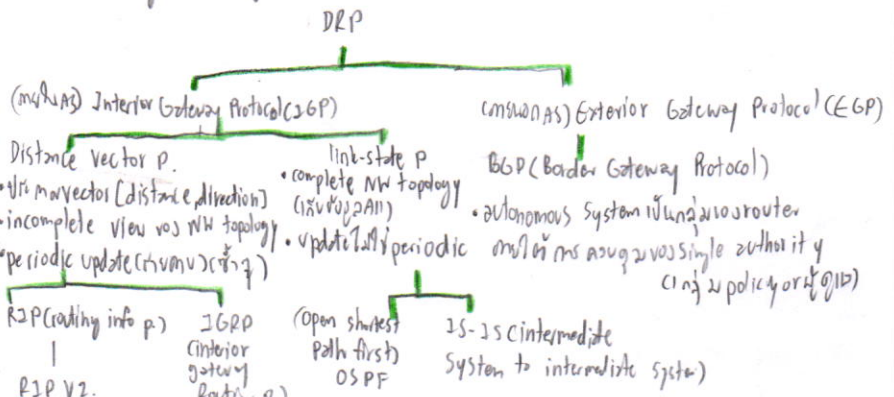 DRP
(ภายใน AS) Interior Gateway Protocol (IGP)
(ภายนอก AS) Exterior Gateway Protocol (EGP)
Distance vector P.
• vector [distance, direction]
• incomplete view ของ NW topology
• periodic update (ตามคาบ) (ช้าๆ)
link-state P
• complete NW topology
(เก็บข้อมูล All)
• update ไม่ใช่ periodic
BGP (Border Gateway Protocol)
• autonomous system เป็นกลุ่มของ router
ภายใต้การควบคุมของ single authority
policy or ผู้ดูแล)
RIP (routing info p.)
RIP V2.
IGRP
(interior
gateway
(Open shortest
Path first)
OSPF
IS-IS (intermediate
System to intermediate system)